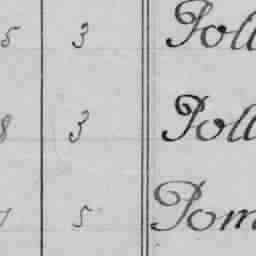 5 3 Poll
8 3 Poll
5 Pom